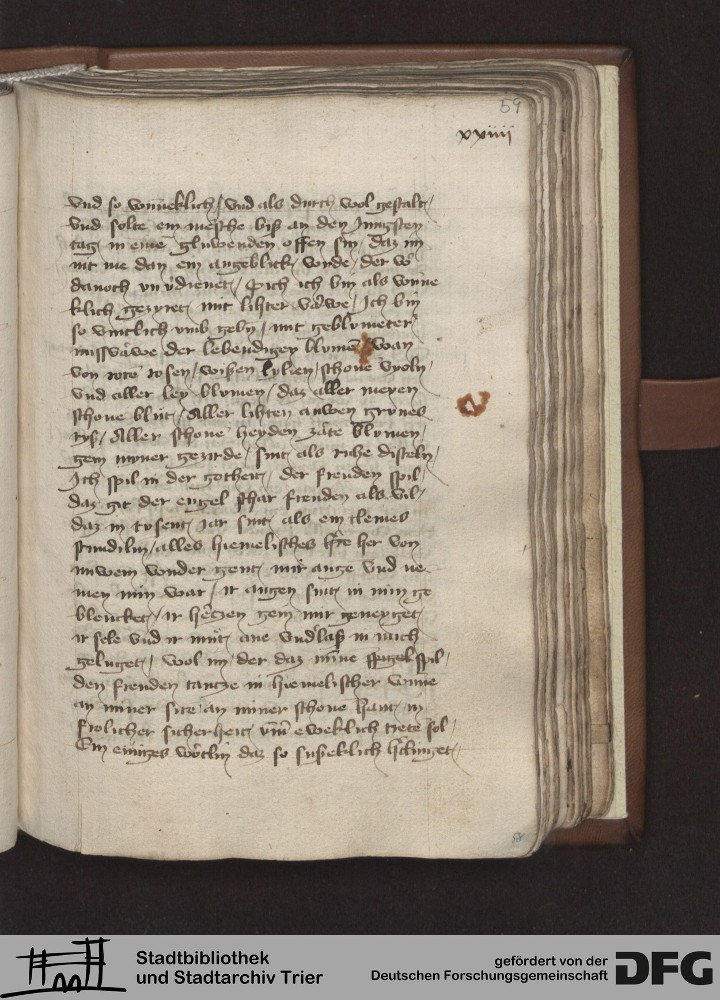 59
xxiiii
vnd so wunneklich / vnd als durch wol gestalt /
vnd solte ein mesche biß an den Jungsten
tag in eine gluwenden offen sin / daz im
nit me dan ein angeblick / wurde / der w
danoch vnv̾dienet / Sich ich bin als wune
klich gezyret / mit lihter / Ich bin
so vmb geben / mit geblumeter
missvawe der lebendigen blumen / wan
von rote rosen / wißen lylien / schone vyoln /
vnd aller ley blumen / daz aller meyen
schone blut / Aller lihten auwen grunes
rys / Aller schone heyden zarte blumen /
gein myner gezirde / sint als ruhe disteln /
Ich spil in der gotheit / der freuden spil /
daz git der engel schar freuden als vil /
daz in tusent jar sint als ein cleines
stundilin / alles hiemelisches here her von
nuwem wonder gent mir auge vnd ne
men min war / ir augen sint in min ge
blencket / ir hertzen gein mir geneyget
ir sele vnd ir mut ane vnderlaß in mich
geluget / wol im der daz mine spil /
den freuden tantze in hiemelischer wune
an miner site an miner schone hant in
frolicher sicherheit ymer eweklich trete sol /
Ein einiges wortlin daz so sußeklich clinget /
Stadtbibliothek
und Stadtarchiv Trier
gefördert von der
Deutschen Forschungsgemeinschaft
DFG